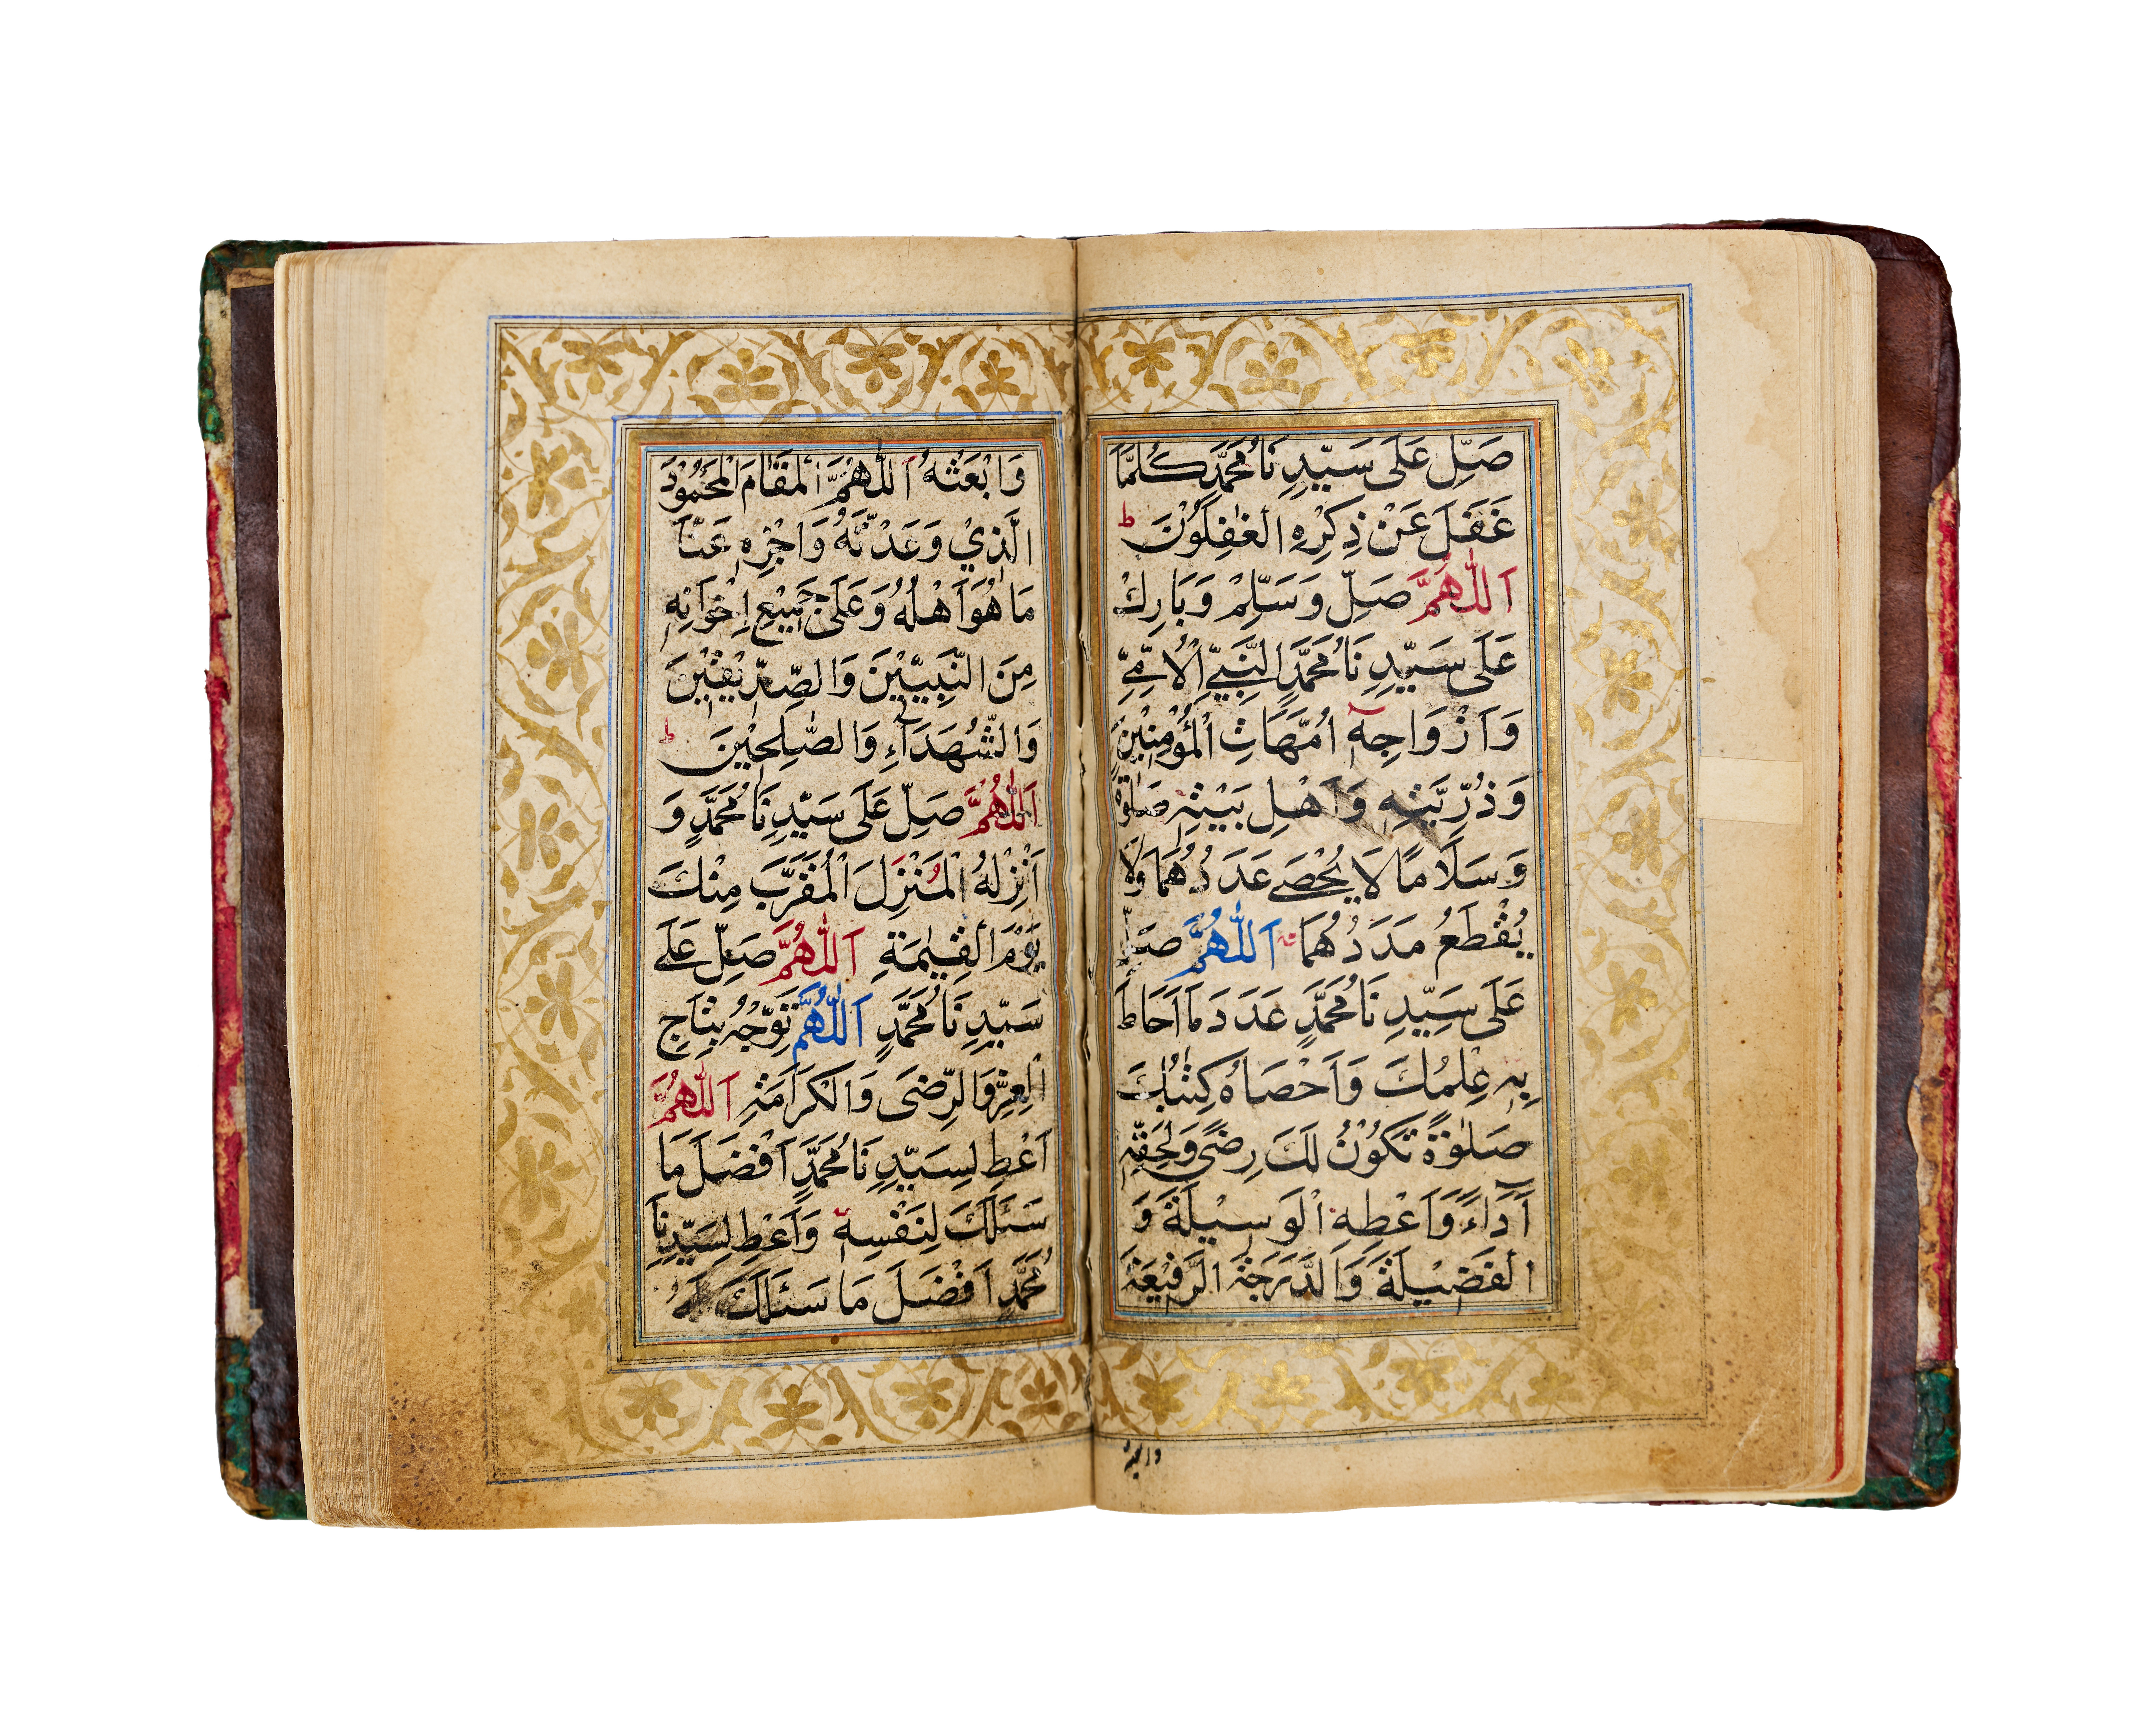 صَلِّ عَلَى سَيِّدِنَا مُحَمَّدٍ كُلَّمَا
غَفَلَ عَنْ ذِكْرِهِ الْغٰفِلُوْنَ ط
اَللّٰهُمَّ صَلِّ وَسَلِّمْ وَبَارِكْ
عَلَى سَيِّدِنَا مُحَمَّدٍ النَّبِيِّ الْاُمِّيِّ
وَاَزْوَاجِهٖٓ اُمَّهَاتِ الْمُؤْمِنِيْنَ
وَذُرِّيَّتِهٖ وَاَهْلِ بَيْتِهٖ صَلٰوةً
وَسَلَامًا لَا يُحْصٰى عَدَدُهُمَا وَلَا
يُقْطَعُ مَدَدُهُمَا اَللّٰهُمَّ صَلِّ
عَلَى سَيِّدِنَا مُحَمَّدٍ عَدَدَ مَا اَحَاطَ
بِهٖ عِلْمُكَ وَاَحْصَاهُ كِتٰبُكَ
صَلٰوةً تَكُوْنُ لَكَ رِضًى وَلِحَقِّهٖٓ
اَدَاءً وَاَعْطِهِ الْوَسِيْلَةَ وَ
الْفَضِيْلَةَ وَالدَّرَجَةَ الرَّفِيْعَةَ
وابعثه
وَابْعَثْهُ اَللّٰهُمَّ الْمَقَامَ الْمَحْمُوْدَ
الَّذِيْ وَعَدْتَّهُ وَاجْزِهٖ عَنَّا
مَا هُوَ اَهْلُهُ وَعَلَى جَمِيْعِ اِخْوَانِهٖ
مِنَ النَّبِيّٖيْنَ وَالصِّدِّيْقِيْنَ
وَالشُّهَدَآءِ وَالصّٰلِحِيْنَ ط
اَللّٰهُمَّ صَلِّ عَلَى سَيِّدِنَا مُحَمَّدٍ وَ
اَنْزِلْهُ الْمُنْزَلَ الْمُقَرَّبَ مِنْكَ
يَوْمَ الْقِيٰمَةِ اَللّٰهُمَّ صَلِّ عَلٰى
سَيِّدِنَا مُحَمَّدٍ اَللّٰهُمَّ تَوِّجْهُ بِتَاجِ
الْعِزِّ وَالرِّضَى وَالْكَرَامَةِ اَللّٰهُمَّ
اَعْطِ لِسَيِّدِنَا مُحَمَّدٍ اَفْضَلَ مَا
سَئَلَكَ لِنَفْسِهٖ وَاَعْطِ لِسَيِّدِنَا
مُحَمَّدٍ اَفْضَلَ مَا سَئَلَكَ لَهُ